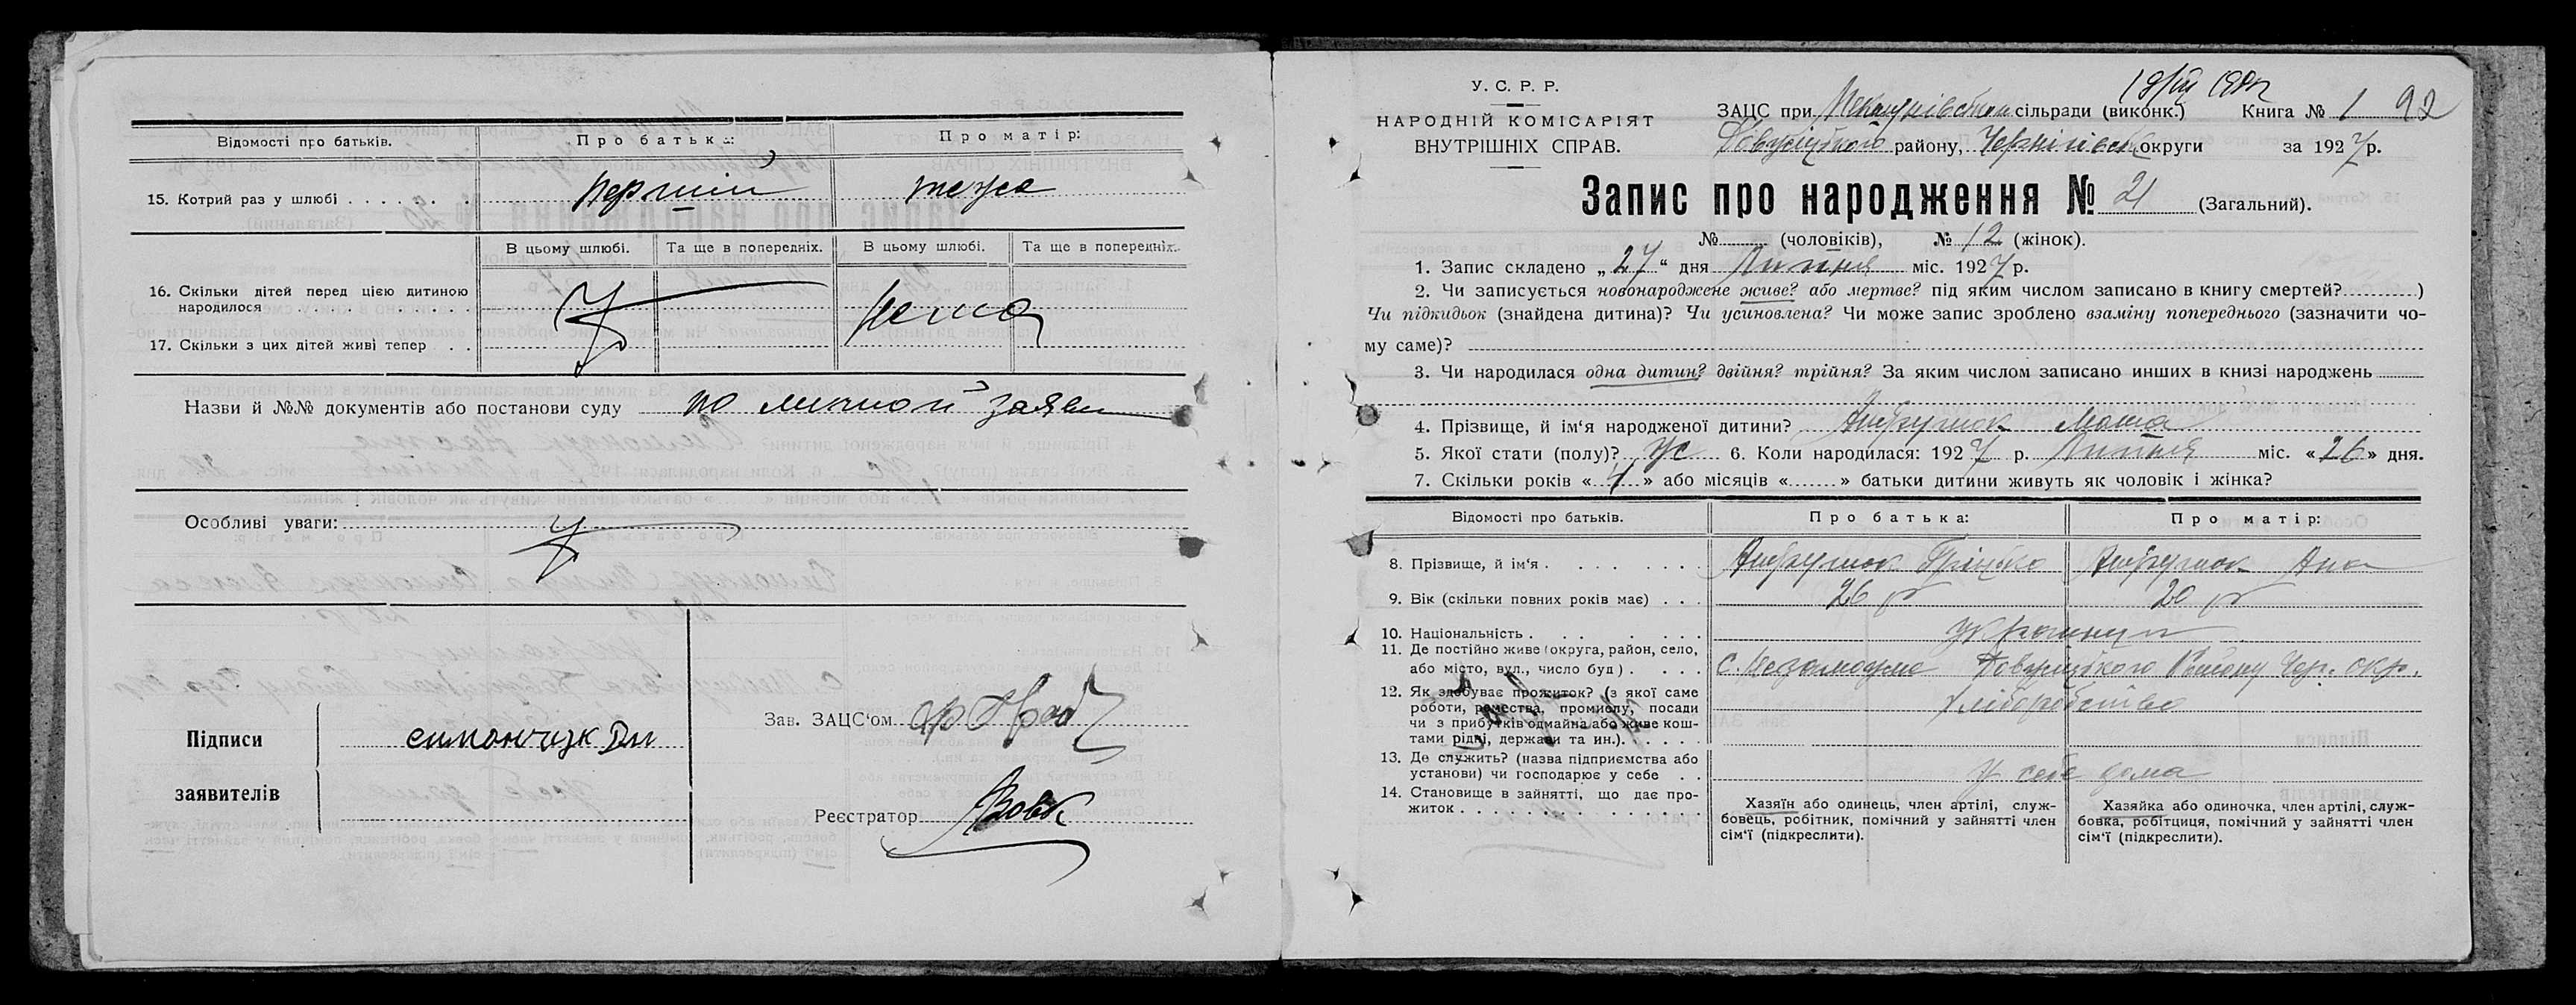 Відомості про батьків. Про батька: Про матір:
15. Котрий раз у шлюбі перший тежа
В цьому шлюбі. Та ще в попередніх. В цьому шлюбі. Та ще в попередніх.
16. Скільки дітей перед цією дитиною
народилося
нема
17. Скільки з цих дітей живі тепер
Назви й №№ документів або постанови суду по личной заяви
Особливі уваги:
Підписи
заявителів
симончук Дм
Зав. ЗАЦС'ом
Реєстратор Вовк
У. С. Р. Р.
НАРОДНІЙ КОМІСАРІЯТ
ВНУТРІШНІХ СПРАВ.
ЗАЦС при сільради (виконк.) Книга № 1 92
району, Чернігівськ округи за 1927 р.
Запис про народження № 21 (Загальний).
№ (чоловіків), № 12 (жінок).
1. Запис складено „ 27 “ дня Липня міс. 1927 р.
2. Чи записується новонароджене живе? або мертве? під яким числом записано в книгу смертей? )
Чи підкидьок (знайдена дитина)? Чи усиновлена? Чи може запис зроблено взаміну попереднього (зазначити чо-
му саме)?
3. Чи народилася одна дитин? двійня? трійня? За яким числом записано инших в книзі народжень
4. Прізвище, й ім'я народженої дитини?
5. Якої стати (полу)? жс 6. Коли народилася: 1927 р. Липня міс. «26» дня.
7. Скільки років « 4 » або місяців « » батьки дитини живуть як чоловік і жінка?
Відомості про батьків. Про батька: Про матір:
8. Прізвище, й ім'я Грицько Ана
9. Вік (скільки повних років має) 26 р 20 р
10. Національність українци
11. Де постійно живе (округа, район, село,
або місто, вул., число буд) с. Чер. окр.
12. Як здобуває прожиток? (з якої саме
роботи, ремества, промислу, посади
чи з прибутків одмайна або живе кош-
тами рідні, держави та ин.).
хліборобство
13. Де служить? (назва підприємства або
установи) чи господарює у себе у себе дома
14. Становище в зайнятті, що дає про-
житок
Хазяїн або одинець, член артілі, служ-
бовець, робітник, помічний у зайнятті член
сім'ї (підкреслити).
Хазяйка або одиночка, член артілі, служ-
бовка, робітциця, помічний у зайнятті член
сім'ї (підкреслити).